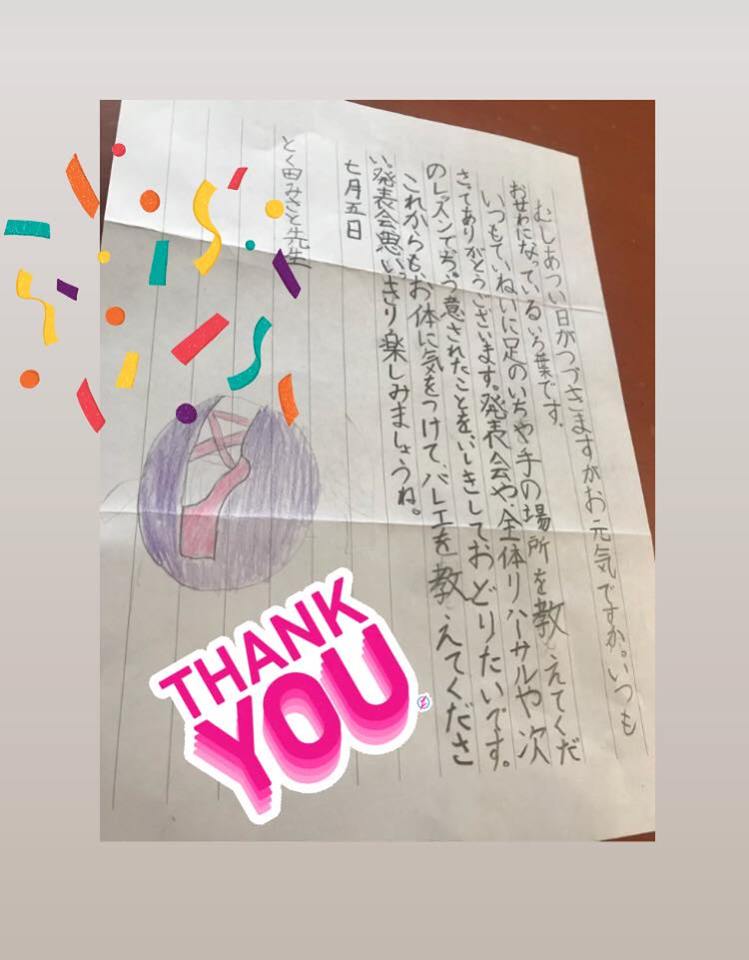 むしあつい日がつづきますがお元気ですか。いつも
おせわになっているいろ葉です。
いつもていねいに足のいちや手の場所を教えてくだ
さってありがとうございます。発表会や、全体リハーサルや次
のレッスンでちゅう意されたことをいしきしておどりたいです。
これからも、お体に気をつけて、バレエを教えてくださ
い。発表会思いきり楽しみましょうね。
七月五日
とく田みさと先生
THANK
YOU